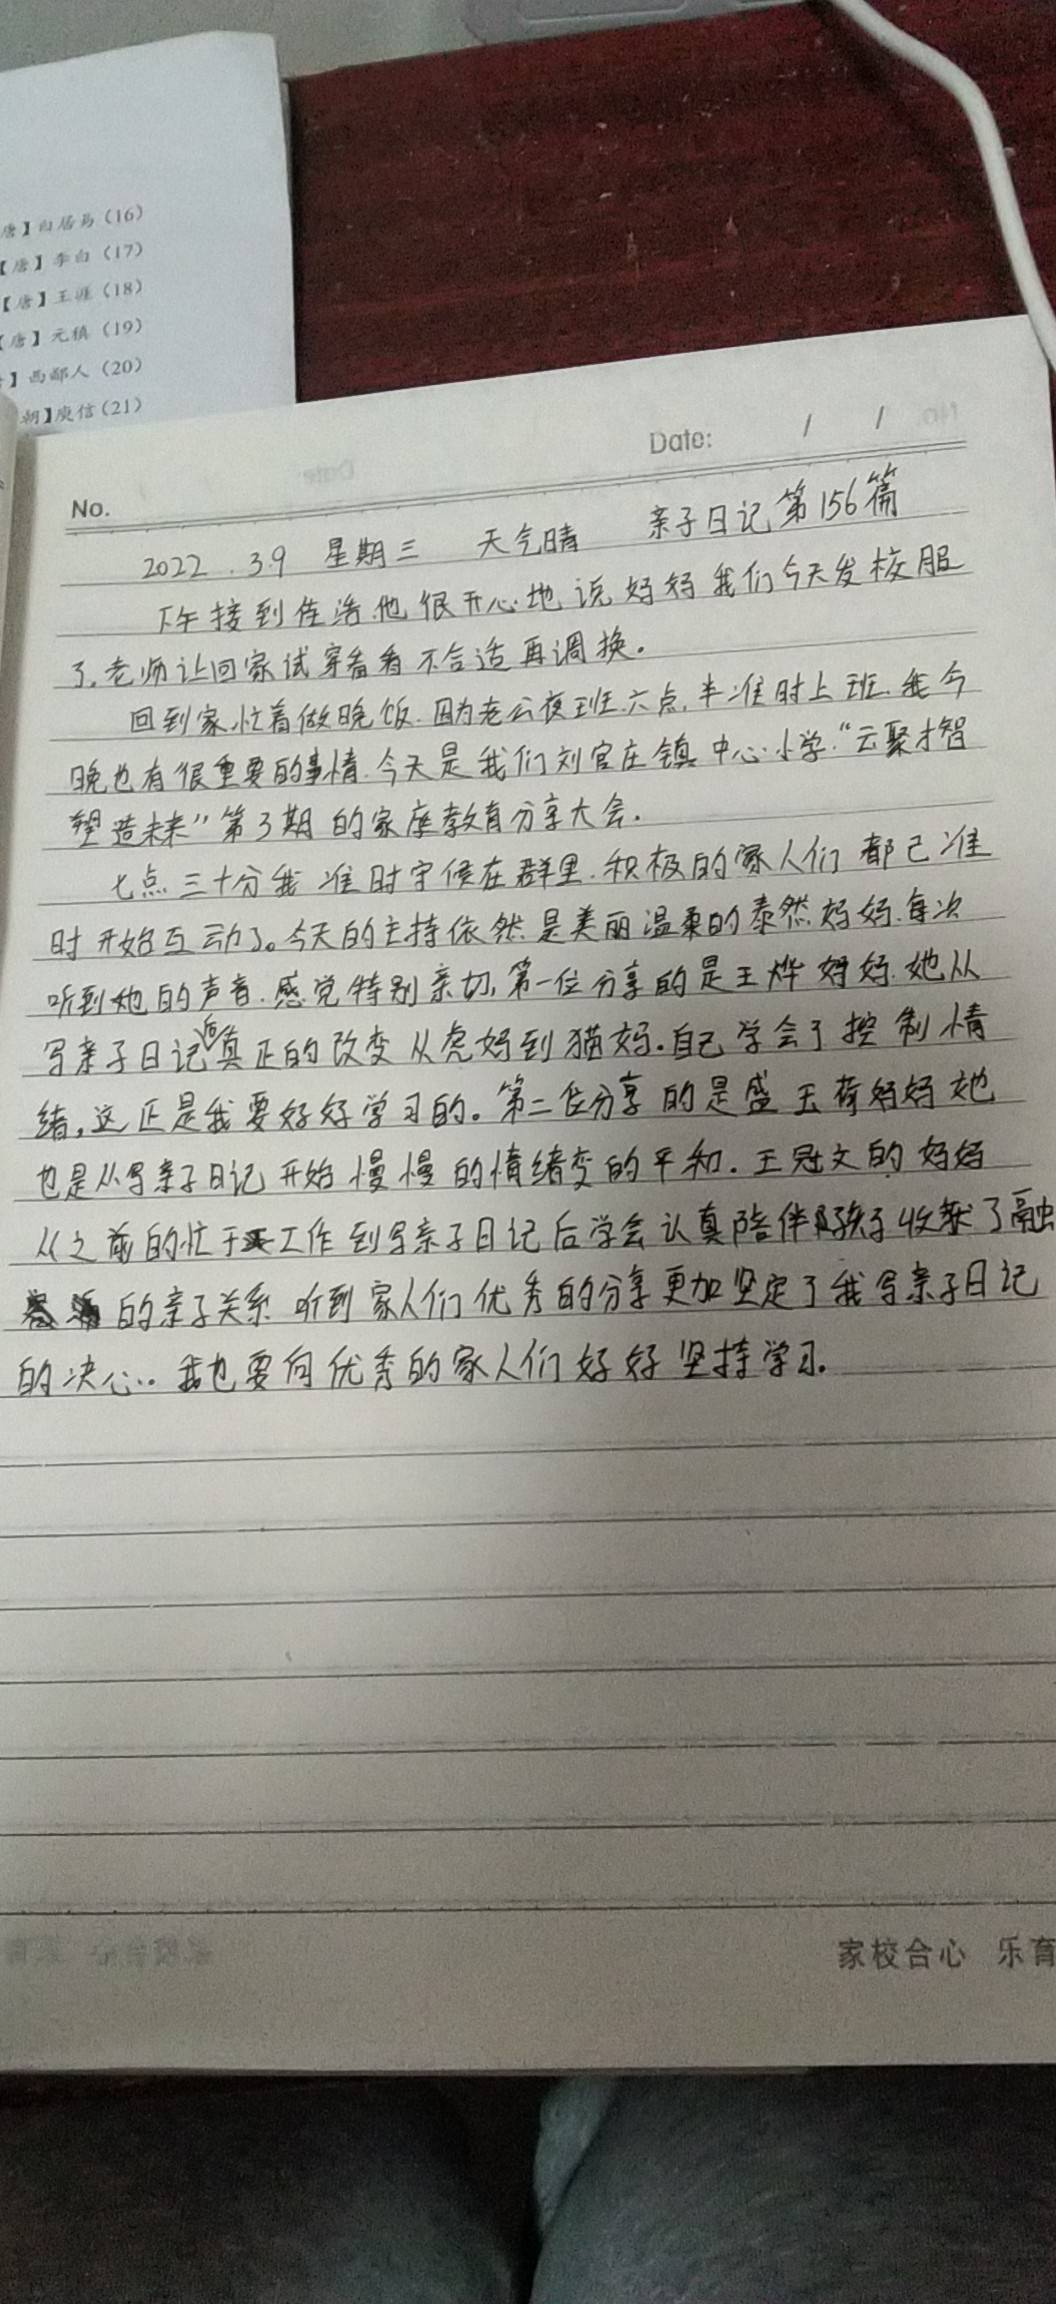 唐】白居易（16）
【唐】李白（17）
【唐】王涯（18）
【唐】元稹（19）
】西鄙人（20）
朝】庾信（21）
Date: / /
No.
2022.3.9 星期三 天气晴 亲子日记第156篇
下午接到佳浩.他很开心地说妈妈我们今天发校服
了.老师让回家试穿看看不合适再调换.
回到家忙着做晚饭.因为老公夜班.六点.半准时上班.我今
晚也有很重要的事情.今天是我们刘官庄镇中心小学."云聚才智
塑造未来"第3期的家庭教育分享大会.
七点三十分我准时守候在群里.积极的家人们都已准
时开始互动了。今天的主持依然是美丽温柔的泰然妈妈.每次
听到她的声音.感觉特别亲切,第一位分享的是王烨妈妈.她从
写亲子日记后真正的改变从虎妈到猫妈.自己学会了控制情
绪,这正是我要好好学习的。第二位分享的是盛玉荷妈妈她
也是从写亲子日记开始慢慢的情绪变的平和.王冠文的妈妈
从之前的忙于工作到写亲子日记后学会认真陪伴孩子收获了融
的亲子关系 听到家人们优秀的分享更加坚定了我写亲子日记
的决心..我也要向优秀的家人们好好坚持学习.
家校合心 乐育